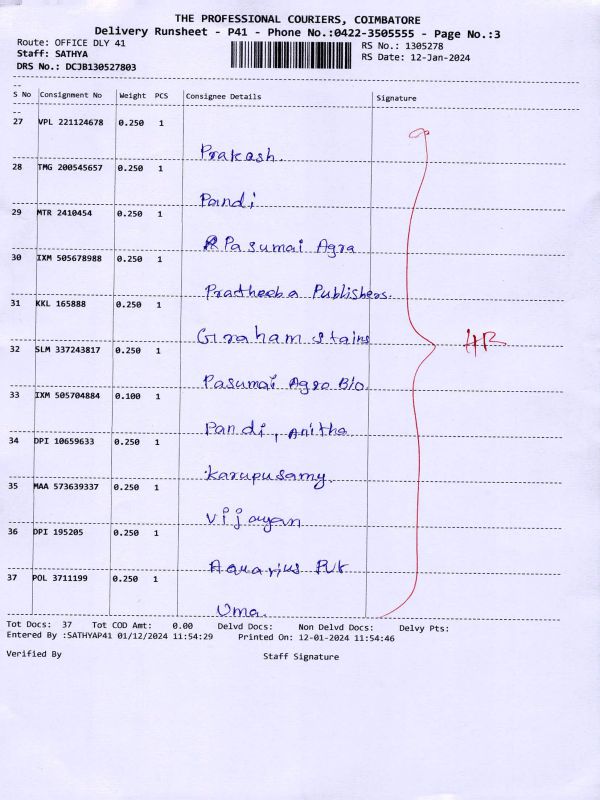 THE PROFESSIONAL COURIERS, COIMBATORE
Delivery Runsheet - P41 - Phone No.:0422-3505555 - Page No.:3
Route: OFFICE DLY 41 RS No.: 1305278
Staff: SATHYA RS Date: 12-Jan-2024
DRS No.: DCJB130527803
S No Consignment No Weight PCS Consignee Details Signature
27 VPL 221124678 0.250 1
Prakash.
28 TMG 200545657 0.250 1
Pandi
29 MTR 2410454 0.250 1
Pasumai Agra
30 IXM 505678988 0.250 1
Pratheeba Publishers.
31 KKL 165888 0.250 1
Graham stains
HR
32 SLM 337243817 0.250 1
Pasumai Agro Bio.
33 IXM 505704884 0.100 1
Pandi, Anitha
34 DPI 10659633 0.250 1
Karupusamy
35 MAA 573639337 0.250 1
Vijayan
36 DPI 195205 0.250 1
Aquarius Pvt
37 POL 3711199 0.250 1
Uma.
Tot Docs: 37 Tot COD Amt: 0.00 Delvd Docs: Non Delvd Docs: Delvy Pts:
Entered By :SATHYAP41 01/12/2024 11:54:29 Printed On: 12-01-2024 11:54:46
Verified By Staff Signature